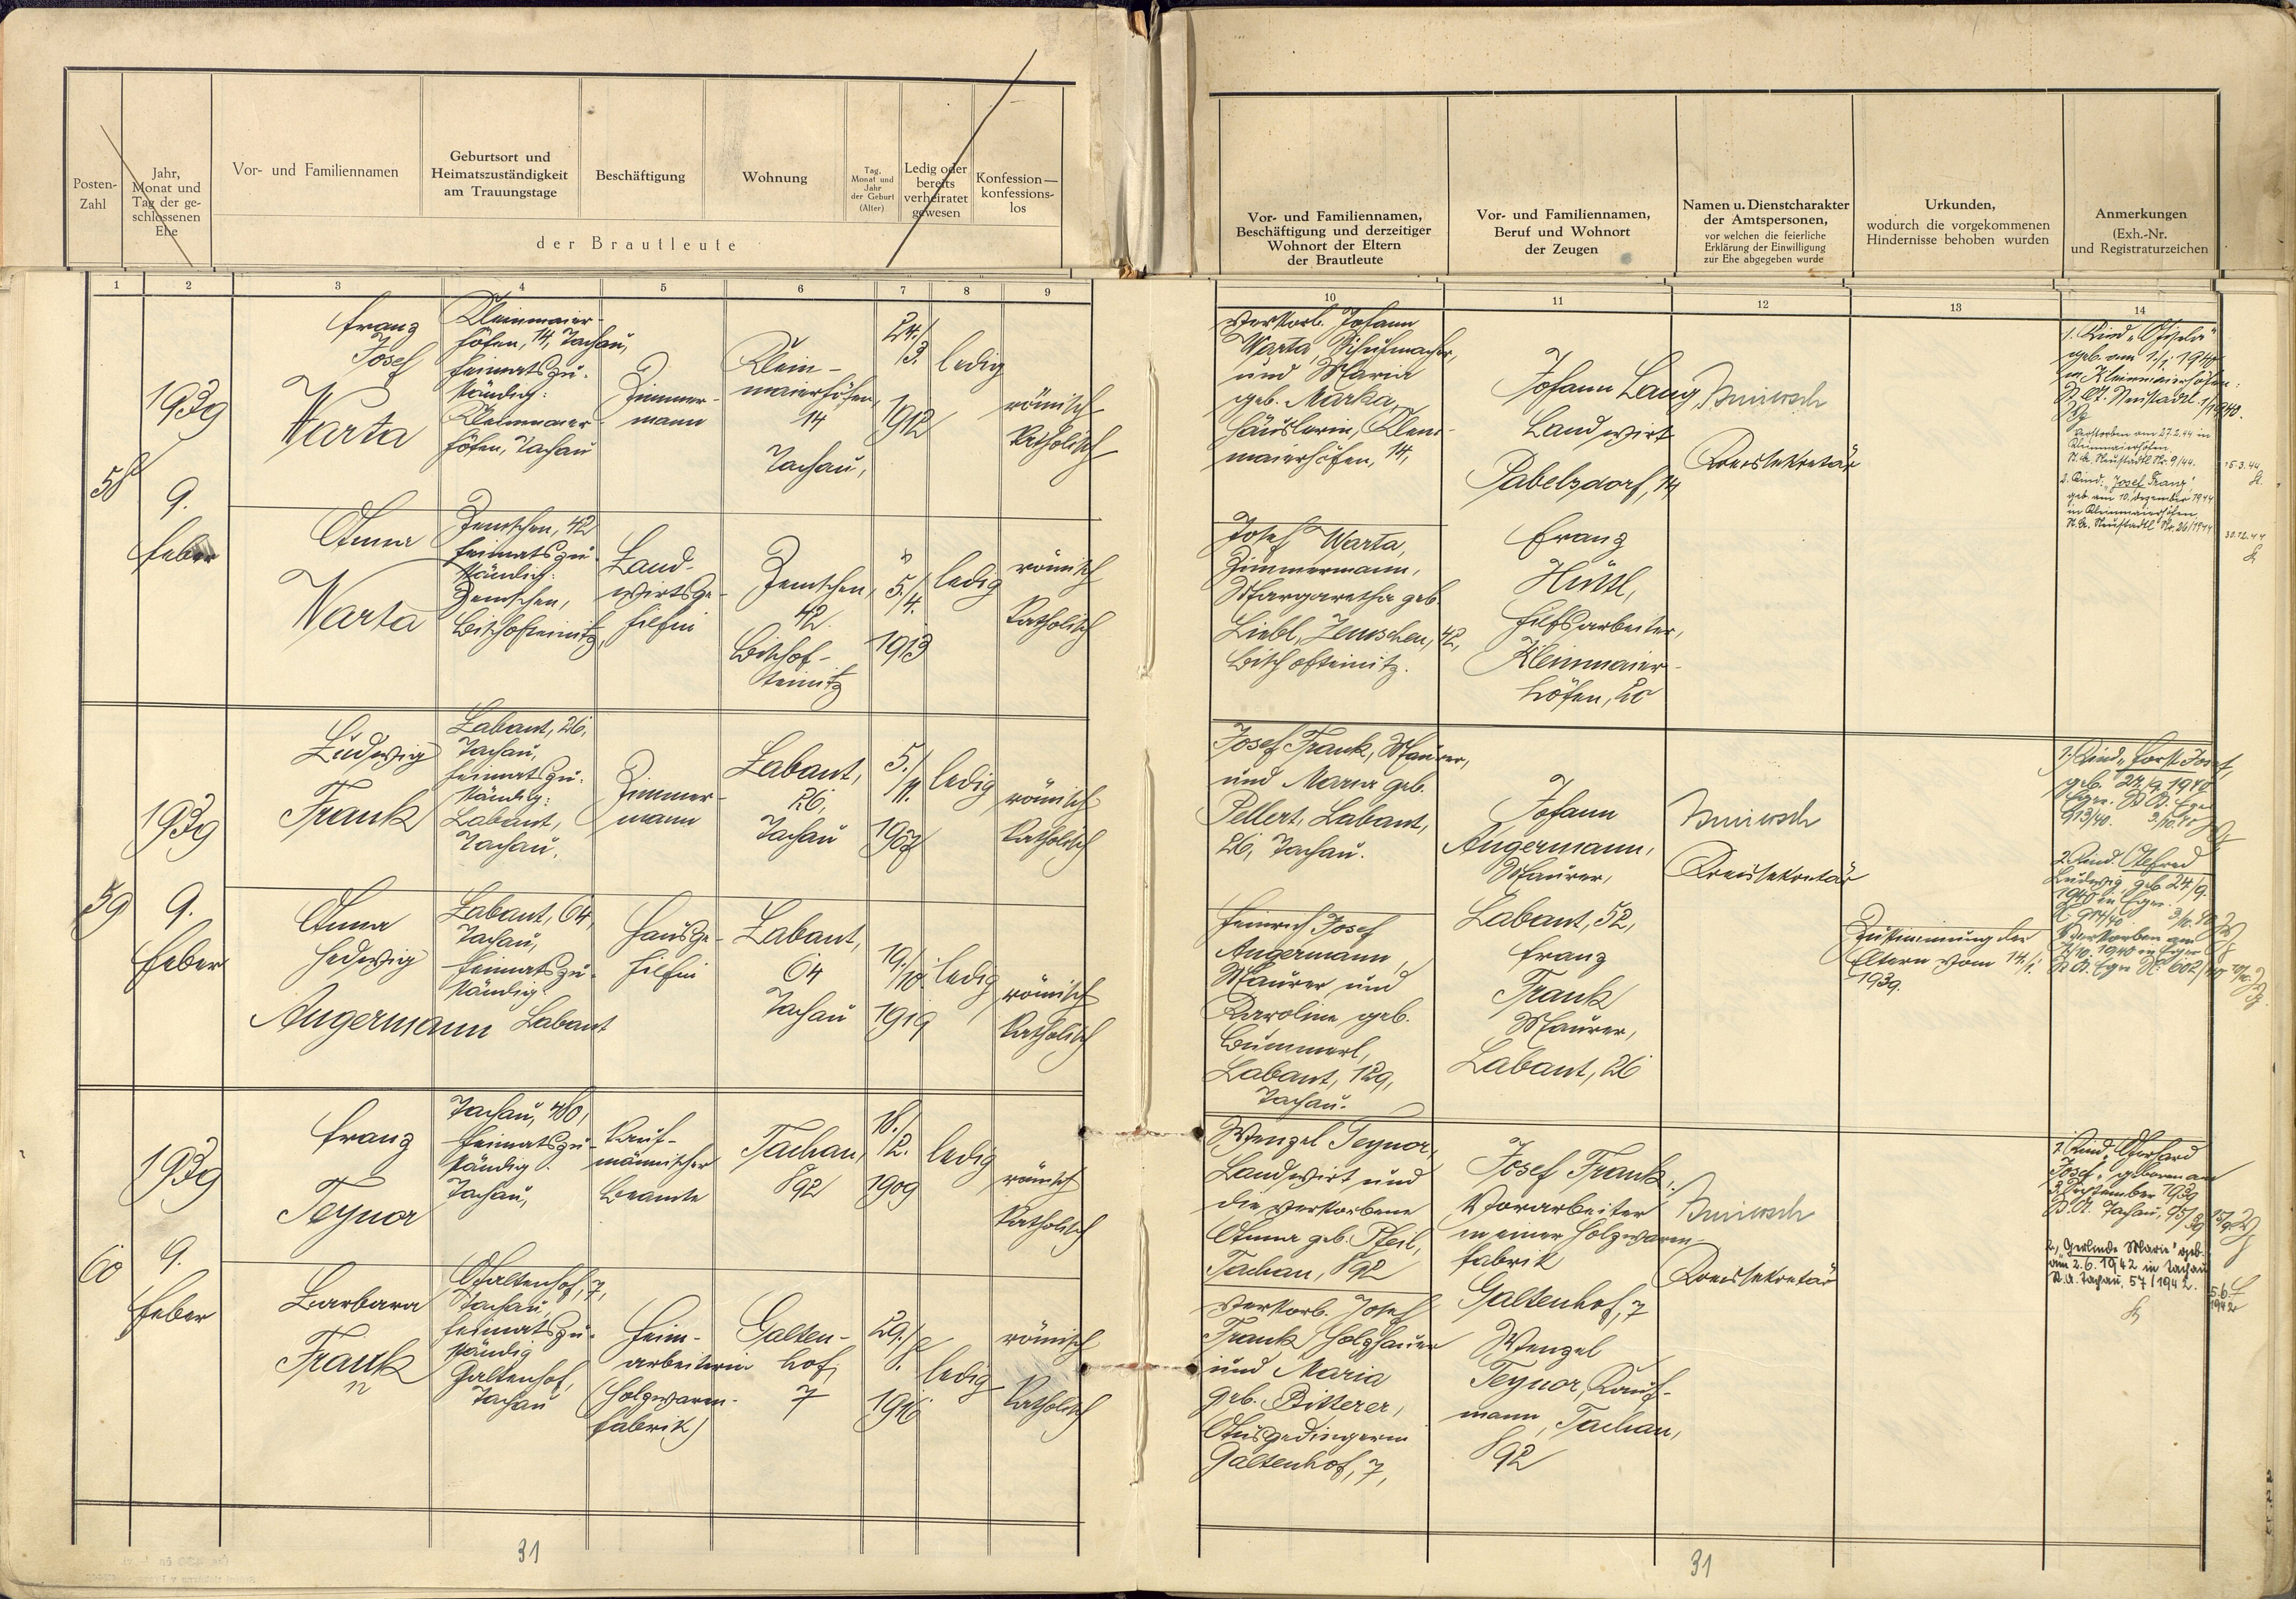 Posten-
Zahl
Jahr,
Monat und
Tag der ge-
schlossenen
Ehe
Vor- und Familiennamen
Geburtsort und
Heimatszuständigkeit
am Trauungstage
Beschäftigung
Wohnung
Tag,
Monat und
Jahr
der Geburt
(Alter)
Ledig oder
bereits
verheiratet
gewesen
Konfession—
konfessions-
los
der Brautleute
Vor- und Familiennamen,
Beschäftigung und derzeitiger
Wohnort der Eltern
der Brautleute
Vor- und Familiennamen,
Beruf und Wohnort
der Zeugen
Namen u. Dienstcharakter
der Amtspersonen,
vor welchen die feierliche
Erklärung der Einwilligung
zur Ehe abgegeben wurde
Urkunden,
wodurch die vorgekommenen
Hindernisse behoben wurden
Anmerkungen
(Exh.-Nr.
und Registraturzeichen
1 2 3 4 5 6 7 8 9
10 11 12 13 14
58
1939
9.
Feber
Franz
Josef
Warta
Kleinmaier-
höfen, 14, Tachau,
heimatszu-
ständig:
Kleinmaier-
höfen, Tachau
Zimmer-
mann
Klein-
maierhöfen,
14
Tachau,
24./
3.
1912
ledig
römisch
katholisch
Anna
Warta
Zemschen, 42
heimatszu-
ständig:
Zemschen,
Bischofteinitz,
Land-
wirtsge-
hilfin
Zemschen,
42.
Bischof-
teinitz
5./
4.
1913
ledig
römisch
katholisch
Verstorb. Johann
Warta, Schuhmacher,
und Maria
geb. Marka,
Häuslerin, Klein-
maierhöfen, 14,
Josef Warta,
Zimmermann,
Margaretha geb.
Liebl, Zemschen, 42,
Bischofteinitz.
Johann Lang,
Landwirt
Pabelsdorf, 14
Franz
Hüttl,
Hilfsarbeiter,
Kleinmaier-
höfen, 20
Kreissekretär
1. Kind "Gisela"
geb. am 1./1. 1940
in Kleinmaierhöfen:
St. A. Neustadtl. 1/1940.
Verstorben am 27.2.44 in
Kleinmaierhöfen.
St. A. Neustadtl Nr. 9/44.
15.3.44.
2. Kind: "Josef Franz",
geb. am 10. dezember 1944
in Kleinmaierhöfen,
St. A. Neustadtl Nr. 26/1944
30.12.44
59
1939
9.
Feber
Ludwig
Frank
Labant, 26,
Tachau,
heimatszu-
ständig:
Labant,
Tachau.
Zimmer-
mann
Labant,
26,
Tachau
5./
11.
1907
ledig
römisch
katholisch
Anna
Hedwig
Angermann
Labant, 64,
Tachau,
heimatszu-
ständig:
Labant
Hausge-
hilfin
Labant,
64
Tachau
19./
10.
1919
ledig
römisch
katholisch
Josef Frank, Maurer,
und Maria geb.
Pellert, Labant,
26, Tachau.
Heinrich Josef
Angermann,
Maurer und
Karoline geb.
Bümmerl,
Labant, 129,
Tachau.
Johann
Angermann,
Maurer,
Labant, 52,
Franz
Frank
Maurer,
Labant, 26
Kreissekretär
Zustimmung der
Eltern vom 14./1.
1939.
1.) Kind "Horst Josef,
geb. 24./9. 1940
Eger. St. A. Eger
913/40.
2. Kind: Alfred
Ludwig, geb. 24./9.
1940 in Eger.
914/40
Verstorben am
1940 in Eger
St. A. Eger N: 602/40
60
1939
9.
Feber
Franz
Teynor
Tachau, 480,
heimatszu-
ständig:
Tachau,
Kauf-
männischer
Beamte
Tachau,
892
18./
12.
1909
ledig
römisch
katholisch
Barbara
Frank
Galtenhof, 7,
Tachau,
heimatszu-
ständig
Galtenhof,
Tachau
Heim-
arbeiterin
(Holzwaren-
fabrik)
Galten-
hof,
7
29./
1916
ledig
römisch
katholisch
Wenzel Teynor,
Landwirt und
die verstorbene
Anna geb. Pfeil,
Tachau, 892
Verstorb. Josef
Frank, Holzhauer
und Maria
geb. Bitterer,
Ausgedingerin
Galtenhof, 7,
Josef Frank,
Vorarbeiter
in einer Holzwaren-
fabrik
Galtenhof, 7
Wenzel
Teynor, Kauf-
mann, Tachau,
892
Kreissekretär
1. Kind: "Gerhard
Josef", geboren am
3. September 1939
St. A. Tachau, 95/39
2., "Gerlinde Marie" geb.
am 2.6.1942 in Tachau
St. A. Tachau, 57/1942.
5.6.
1942
31
31